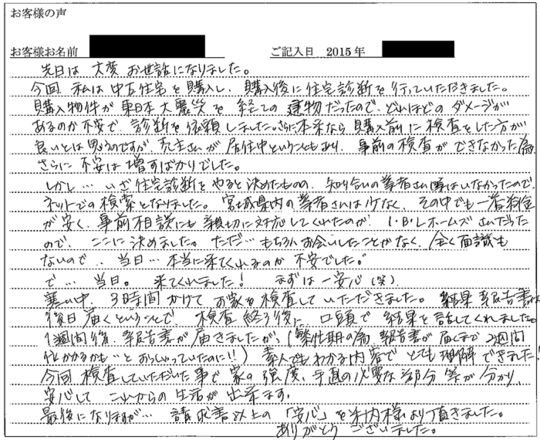 お客様の声
お客様お名前 ご記入日 2015年
先日は大変お世話になりました。
今回、私は中古住宅を購入し、購入後に住宅診断を行っていただきました。
購入物件が東日本大震災を経ての建物だったので、どれほどのダメージが
あるのか不安で、診断を依頼しました。さらに本来なら購入前に検査をした方が
良いとは思うのですが、売主さんが居住中ということもあり、事前の検査ができなかった為
さらに不安は増すばかりでした。
しかし…いざ住宅診断をやると決めたものの、知り合いの業者さん等はいなかったので
ネットでの検索となりました。宮城県内の業者さんは少なく、その中でも一番料金
が安く、事前相談にも親切に対応してくれたのが、I・B・Lホームズさんだった
ので、ここに決めました。ただ…もちろんお会いしたことがなく、全く面識も
ないので、当日…本当に来てくれるのか不安でした。
で…当日。来てくれました! まずは一安心(笑)
寒い中、3時間かけてお家を検査していただきました。結果報告書は
後日届くということで、検査終了後に、口頭で結果を話してくれました。
1週間後、報告書が届きましたが、(繁忙期の為、報告書が届くまで2週間
位かかるかも…とおっしゃっていたのに!!)素人でもわかる内容で、とても理解できました!
今回検査していただいた事で家の強度、手直の必要な部分等が分かり、
安心してこれからの生活が出来ます。
最後になりますが…請求書以上の「安心」を木内様より頂きました。
ありがとうございました。